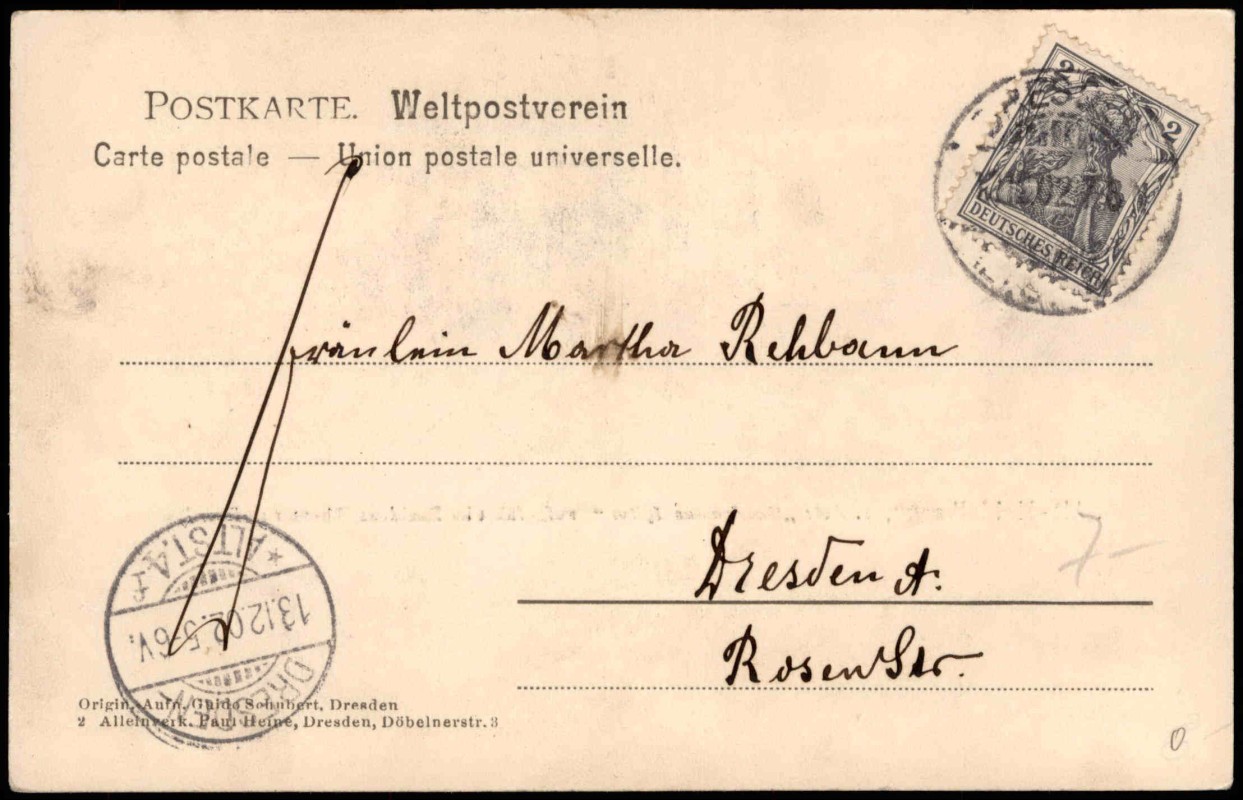 POSTKARTE. Weltpostverein
Carte postale — Union postale universelle.
2 2
DEUTSCHES REICH
02.7-8
Fräulein Martha Rehbaum
Dresden A.
Rosenstr.
7-
DRESDEN
13.12.02.5-6V.
* ALTST.A.
Origin.-Aufn. Guido Schubert, Dresden
2 Alleinwerk. Paul Heine, Dresden, Döbelnerstr. 3
0